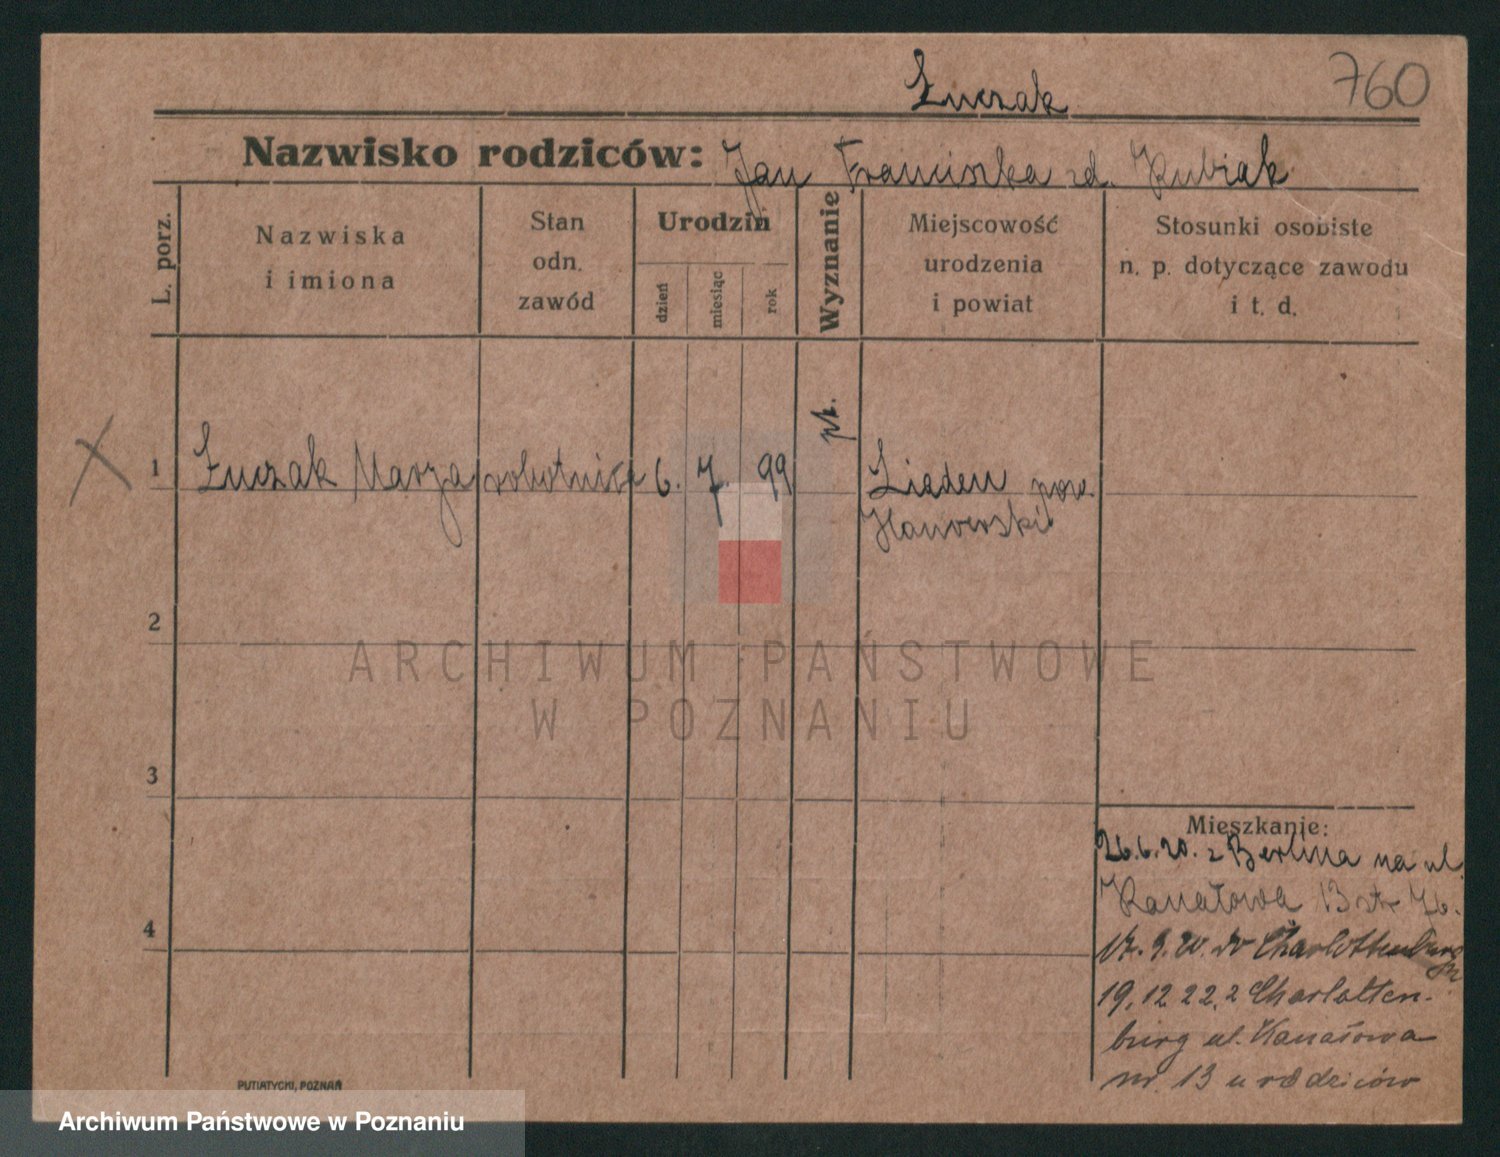 760
Łuczak
Nazwisko rodziców: Jan Franciszka zd. Kubiak
L. porz.
Nazwiska
i imiona
Stan
odn.
zawód
Urodzin
dzień
miesiąc
rok
Wyznanie
Miejscowość
urodzenia
i powiat
Stosunki osobiste
n. p. dotyczące zawodu
i t. d.
1 Łuczak Marja robotnica 6. 7. 99 rk. Linden pow.
Hanowerski
2
3
4
Mieszkanie:
26.6.20. z Berlina na ul.
Kanałowa 13
17.9.20. do Charlottenburg
19.12.22. z Charlotten-
burg ul. Kanałowa
nr. 13 u rodziców
PUTIATYCKI, POZNAŃ
ARCHIWUM PAŃSTWOWE
W POZNANIU
Archiwum Państwowe w Poznaniu